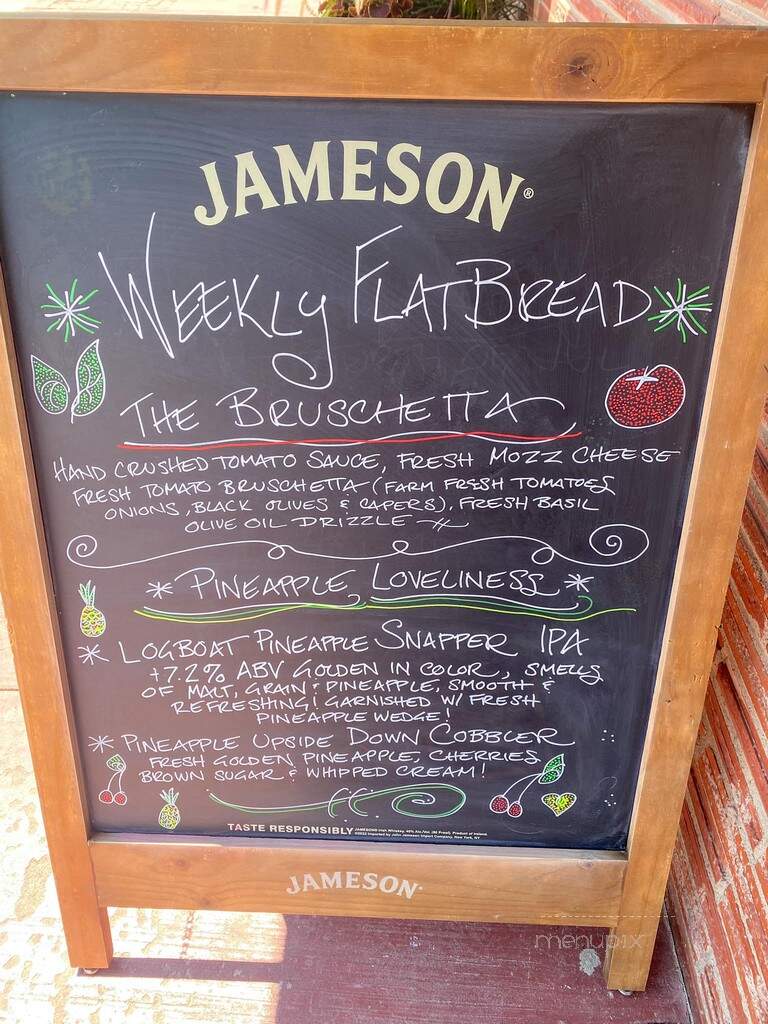 JAMESON®
WEEKLY FLATBREAD
THE BRUSCHETTA
HAND CRUSHED TOMATO SAUCE, FRESH MOZZ CHEESE
FRESH TOMATO BRUSCHETTA (FARM FRESH TOMATOES
ONIONS, BLACK OLIVES & CAPERS), FRESH BASIL
OLIVE OIL DRIZZLE
* PINEAPPLE LOVELINESS *
* LOGBOAT PINEAPPLE SNAPPER IPA
+7.2% ABV GOLDEN IN COLOR, SMELLS
OF MALT, GRAIN & PINEAPPLE, SMOOTH &
REFRESHING! GARNISHED W/ FRESH
PINEAPPLE WEDGE!
* PINEAPPLE UPSIDE DOWN COBBLER
FRESH GOLDEN PINEAPPLE, CHERRIES
BROWN SUGAR & WHIPPED CREAM!
TASTE RESPONSIBLY. JAMESON® Irish Whiskey. 40% Alc./Vol. (80 Proof). Product of Ireland.
©2022 Imported by John Jameson Import Company, New York, NY
JAMESON®
menupix